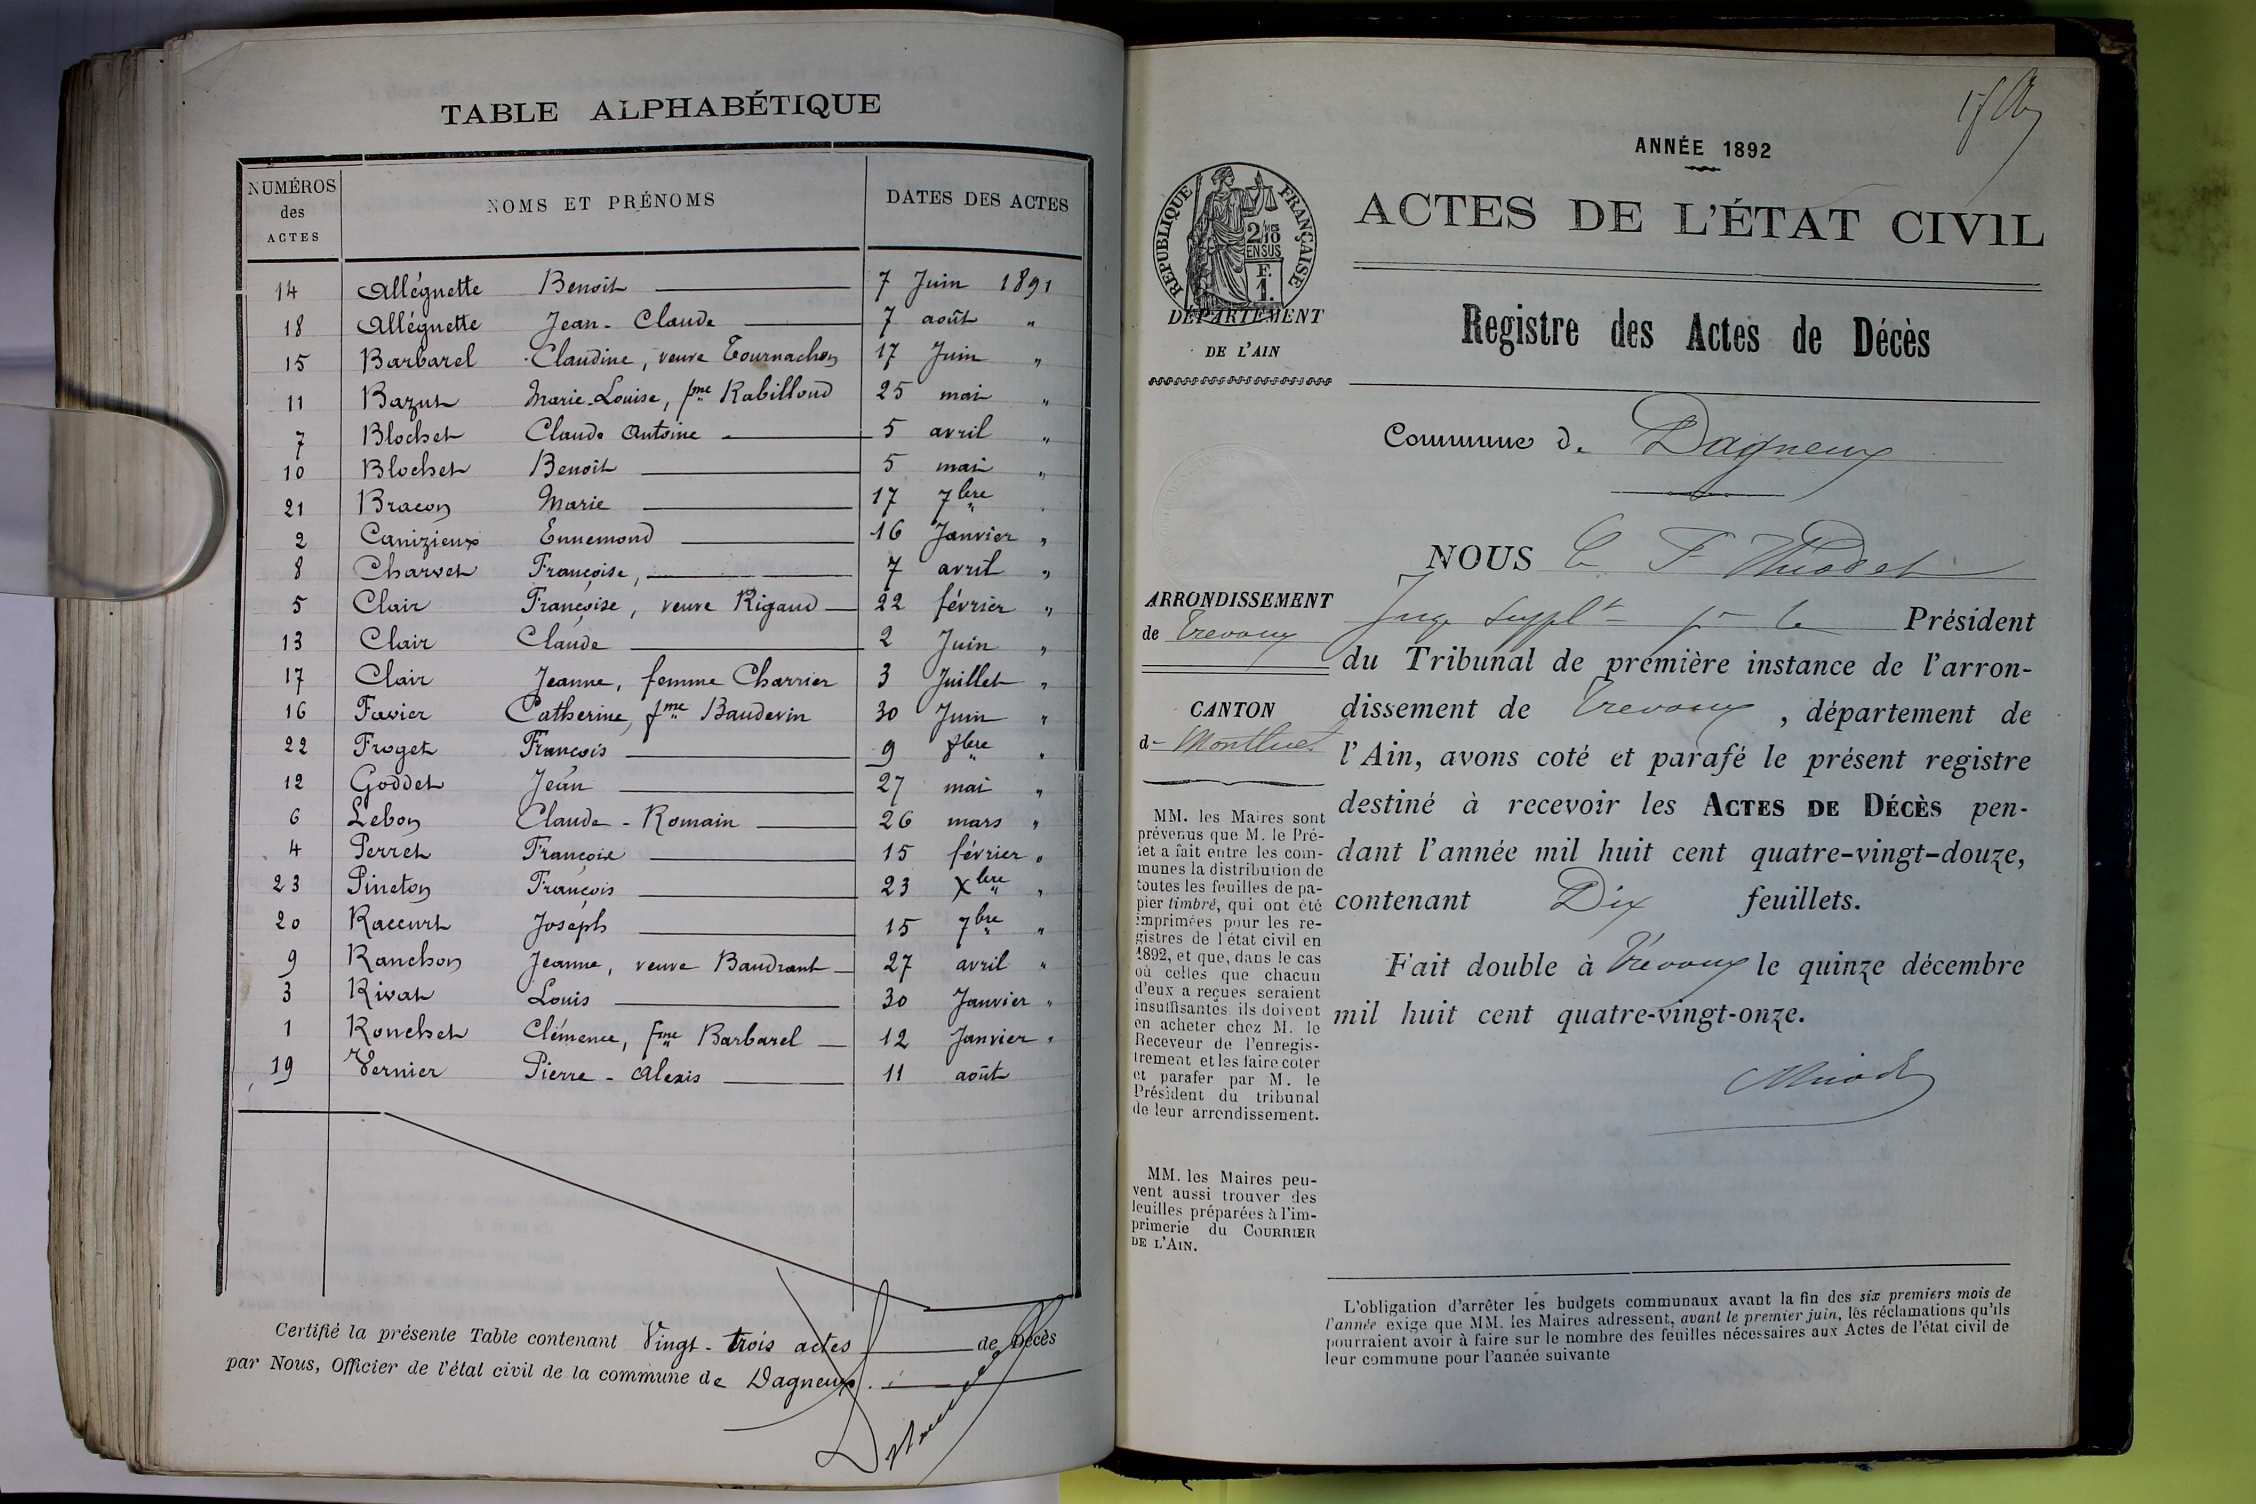 TABLE ALPHABÉTIQUE
NUMÉROS des ACTES NOMS ET PRÉNOMS DATES DES ACTES
14 Alléguette Benoit 7 Juin 1891
18 Alléguette Jean-Claude 7 août "
15 Barbarel Claudine, veuve Tournachon 17 Juin "
11 Bazut Marie-Louise, fme Rabilloud 25 mai "
7 Blochet Claude Antoine 5 avril "
10 Blochet Benoit 5 mai "
21 Bracon Marie 17 7bre
2 Canizieux Ennemond 16 Janvier "
8 Charvet Françoise, 7 avril "
5 Clair Françoise, veuve Rigaud 22 février "
13 Clair Claude 2 Juin "
17 Clair Jeanne, femme Charrier 3 Juillet "
16 Favier Catherine, fme Baudevin 30 Juin "
22 Froget François 9 "
12 Goddet Jean 27 mai "
6 Lebon Claude-Romain 26 mars "
4 Perret 15 février "
23 Pineton François 23 Xbre "
20 Raccurt Joseph 15 7bre "
9 Ranchon Jeanne, veuve Baudrant 27 avril "
3 Rivat Louis 30 Janvier "
1 Ronchet Clémence, fme Barbarel 12 Janvier "
19 Vernier Pierre-Alexis 11 août
Certifié la présente Table contenant Vingt-trois actes de Décès
par Nous, Officier de l'état civil de la commune de Dagneux.
ANNÉE 1892
RÉPUBLIQUE FRANÇAISE
2/10 EN SUS
F. 1.
ACTES DE L'ÉTAT CIVIL
DÉPARTEMENT
DE L'AIN
Registre des Actes de Décès
Commune de Dagneux
ARRONDISSEMENT
de Trevoux
CANTON
de Montluel
MM. les Maires sont
prévenus que M. le Pré-
fet a fait entre les com-
munes la distribution de
toutes les feuilles de pa-
pier timbré, qui ont été
imprimées pour les re-
gistres de l'état civil en
1892, et que, dans le cas
où celles que chacun
d'eux a reçues seraient
insuffisantes ils doivent
en acheter chez M. le
Receveur de l'enregis-
trement et les faire coter
et parafer par M. le
Président du tribunal
de leur arrondissement.
MM. les Maires peu-
vent aussi trouver des
feuilles préparées à l'im-
primerie du COURRIER
DE L'AIN.
NOUS
Juge Supplt pr le Président
du Tribunal de première instance de l'arron-
dissement de Trevoux, département de
l'Ain, avons coté et parafé le présent registre
destiné à recevoir les ACTES DE DÉCÈS pen-
dant l'année mil huit cent quatre-vingt-douze,
contenant Dix feuillets.
Fait double à Trévoux le quinze décembre
mil huit cent quatre-vingt-onze.
L'obligation d'arrêter les budgets communaux avant la fin des six premiers mois de
l'année exige que MM. les Maires adressent, avant le premier juin, les réclamations qu'ils
pourraient avoir à faire sur le nombre des feuilles nécessaires aux Actes de l'état civil de
leur commune pour l'année suivante